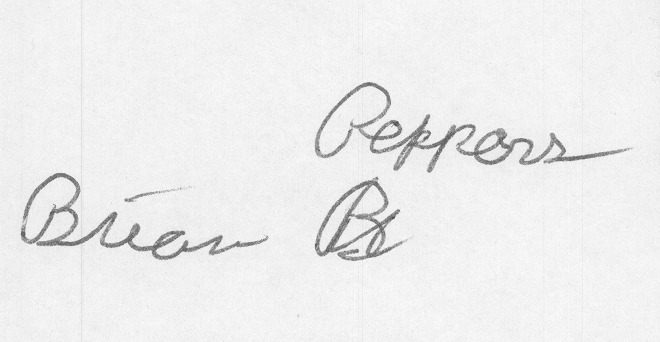 Peppers
Brian